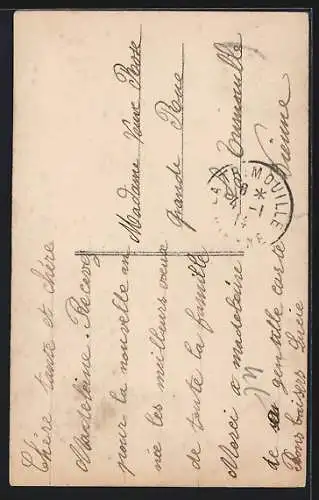 Chère tante et chère
Madeleine. Recevez
pour la nouvelle an
née les meilleurs voeux
de toute la famille
Merci à madeleine
de sa gentille carte
Bons baisers Lucie
Madame Veuve
Grande Rue
La Trimouille
Vienne
LA TRIMOUILLE